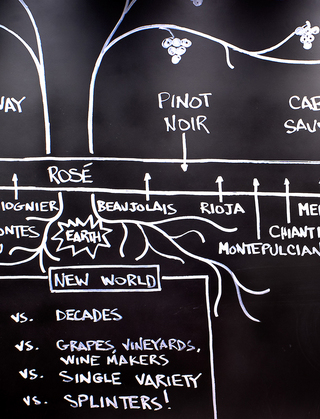 WAY
PINOT
NOIR
CAB
SAUV
ROSÉ
IOGNIER
BEAUJOLAIS
RIOJA
MER
ONTES
EARTH
CHIANTI
MONTEPULCIAN
NEW WORLD
VS. DECADES
VS. GRAPES, VINEYARDS,
WINE MAKERS
VS. SINGLE VARIETY
VS. SPLINTERS!